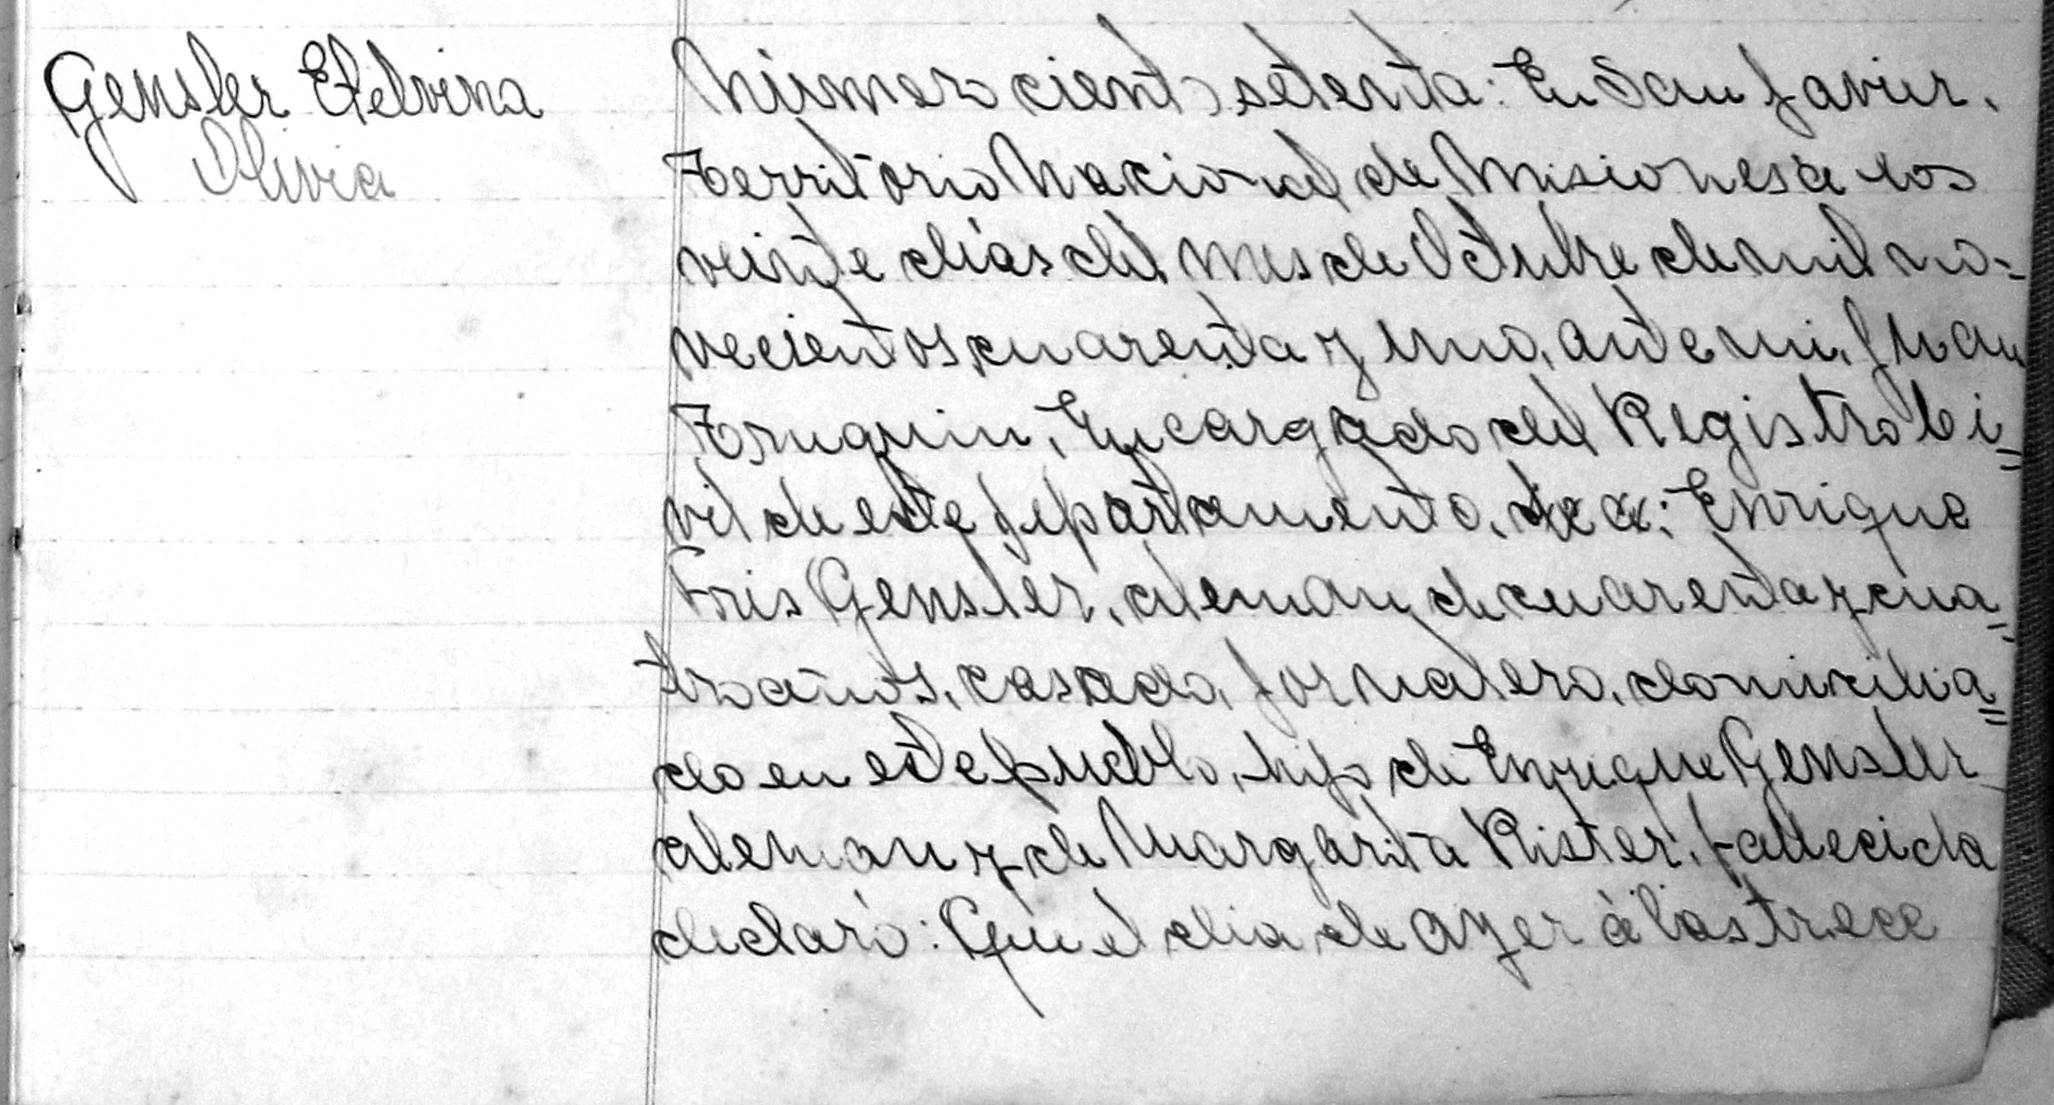 Gensler Etelvina
Olivia
Número ciento setenta: En San Javier,
Territorio Nacional de Misiones a los
veinte días del mes de Octubre de mil no=
vecientos cuarenta y uno, ante mi, Juan
Encargado del Registro Ci=
vil de este Departamento, Enrique
Fris Gensler, aleman de cuarenta y cua=
tro años, casado, jornalero, domicilia=
do en este pueblo, hijo de Enrique Gensler
aleman y de Margarita Rister, fallecida
declaró: Que el dia de ayer á las trece